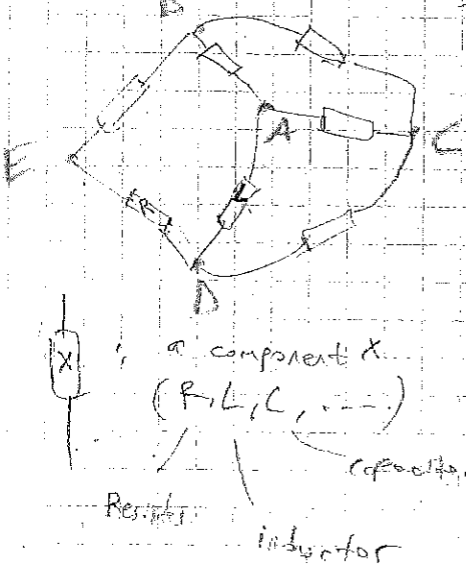 B
A
C
E
R
L
D
X : a component X
(R, L, C, ....)
capacitor
Resistor
inductor